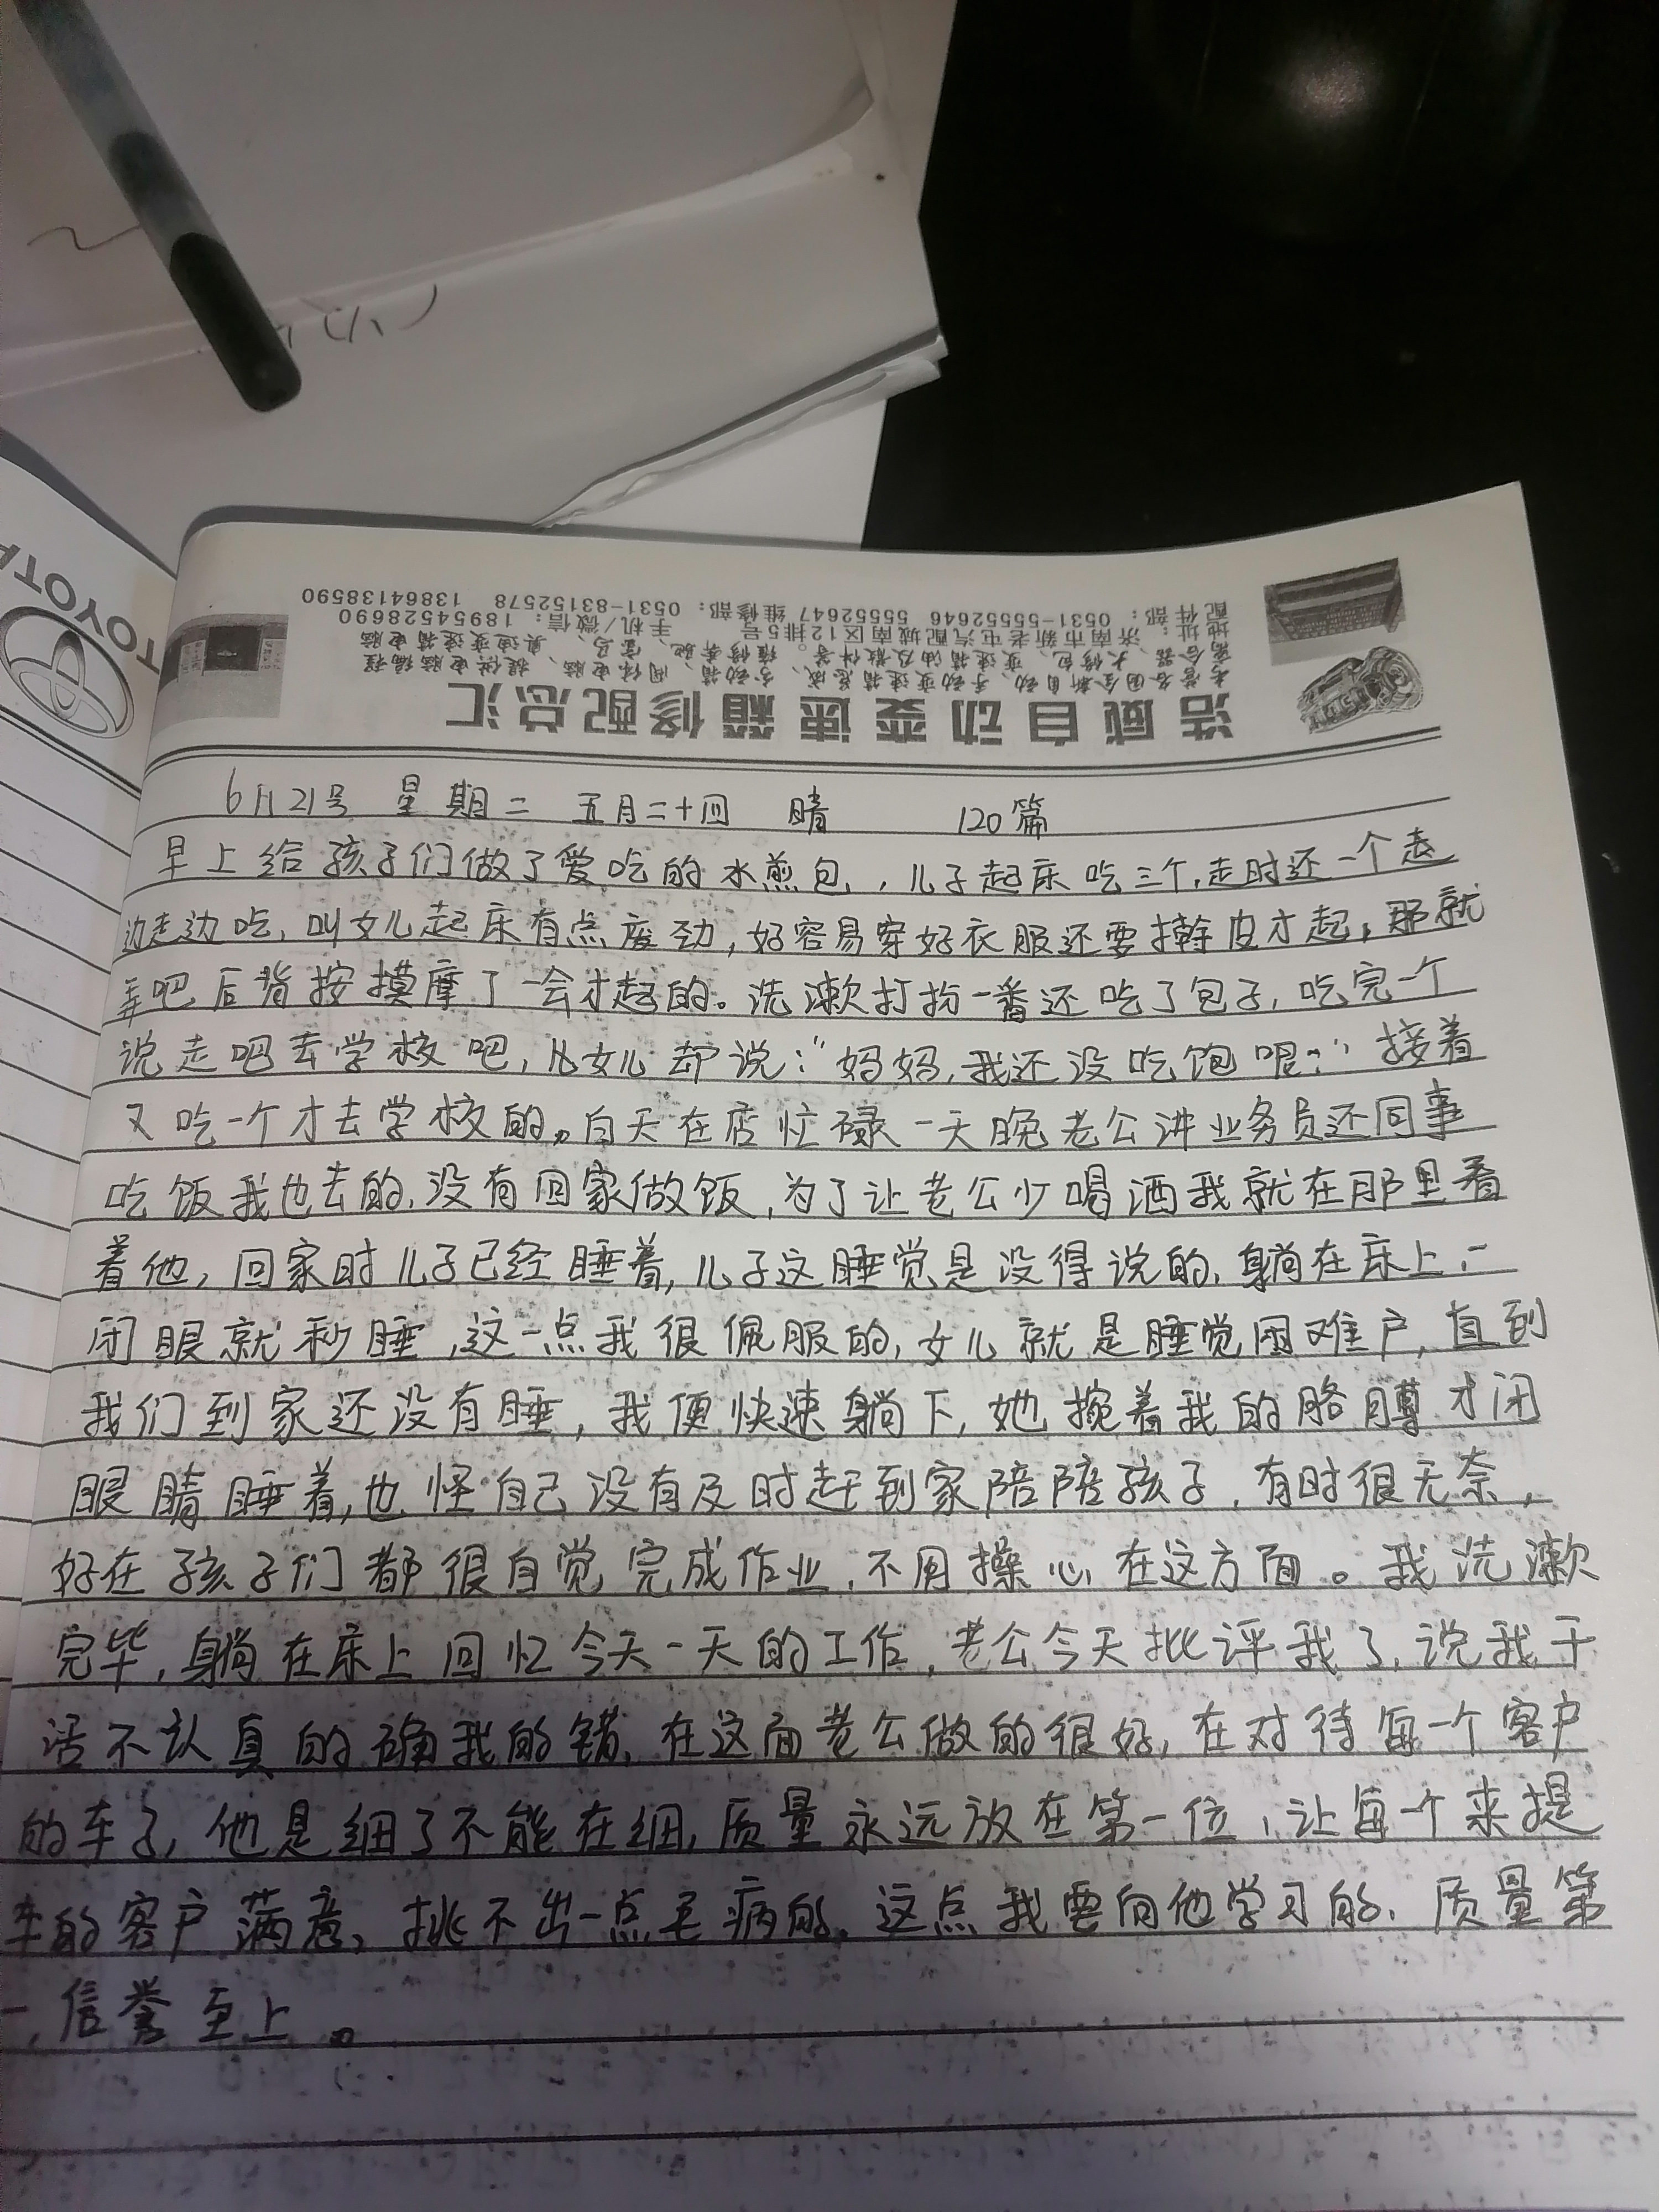 TOYOTA
浩威自动变速箱修配总汇
地址：济南市新老屯汽配城南区12排5号 手机/微信：18954528690
配件部：0531-55552646 55552647 维修部：0531-83152578 13864138590
6月21号 星期二 五月二十回 晴 120篇
早上给孩子们做了爱吃的水煎包，儿子起床吃三个，走时还一个走
边走边吃，叫女儿起床有点废劲，好容易穿好衣服还要擀皮才起，那就
弄吧后背按摸摩了一会才起的。洗漱打扮一番还吃了包子，吃完一个
说走吧去学校吧，儿女儿却说："妈妈，我还没吃饱呢？"接着
又吃一个才去学校的。白天在店忙碌一天晚老公讲业务员还同事
吃饭我也去的，没有回家做饭，为了让老公少喝酒我就在那里看
着他，回家时儿子已经睡着，儿子这睡觉是没得说的，躺在床上，一
闭眼就秒睡，这一点我很佩服的，女儿就是睡觉困难户，直到
我们到家还没有睡，我便快速躺下，她挽着我的胳膊才闭
眼睛睡着，也怪自己没有及时赶到家陪陪孩子，有时很无奈，
好在孩子们都很自觉完成作业，不用操心在这方面。我洗漱
完毕，躺在床上回忆今天一天的工作，老公今天批评我了，说我干
活不认真的确我的错，在这面老公做的很好，在对待每一个客户
的车子，他是细了不能在细，质量永远放在第一位，让每个来提
车的客户满意，挑不出一点毛病的。这点我要向他学习的，质量第
一，信誉至上。